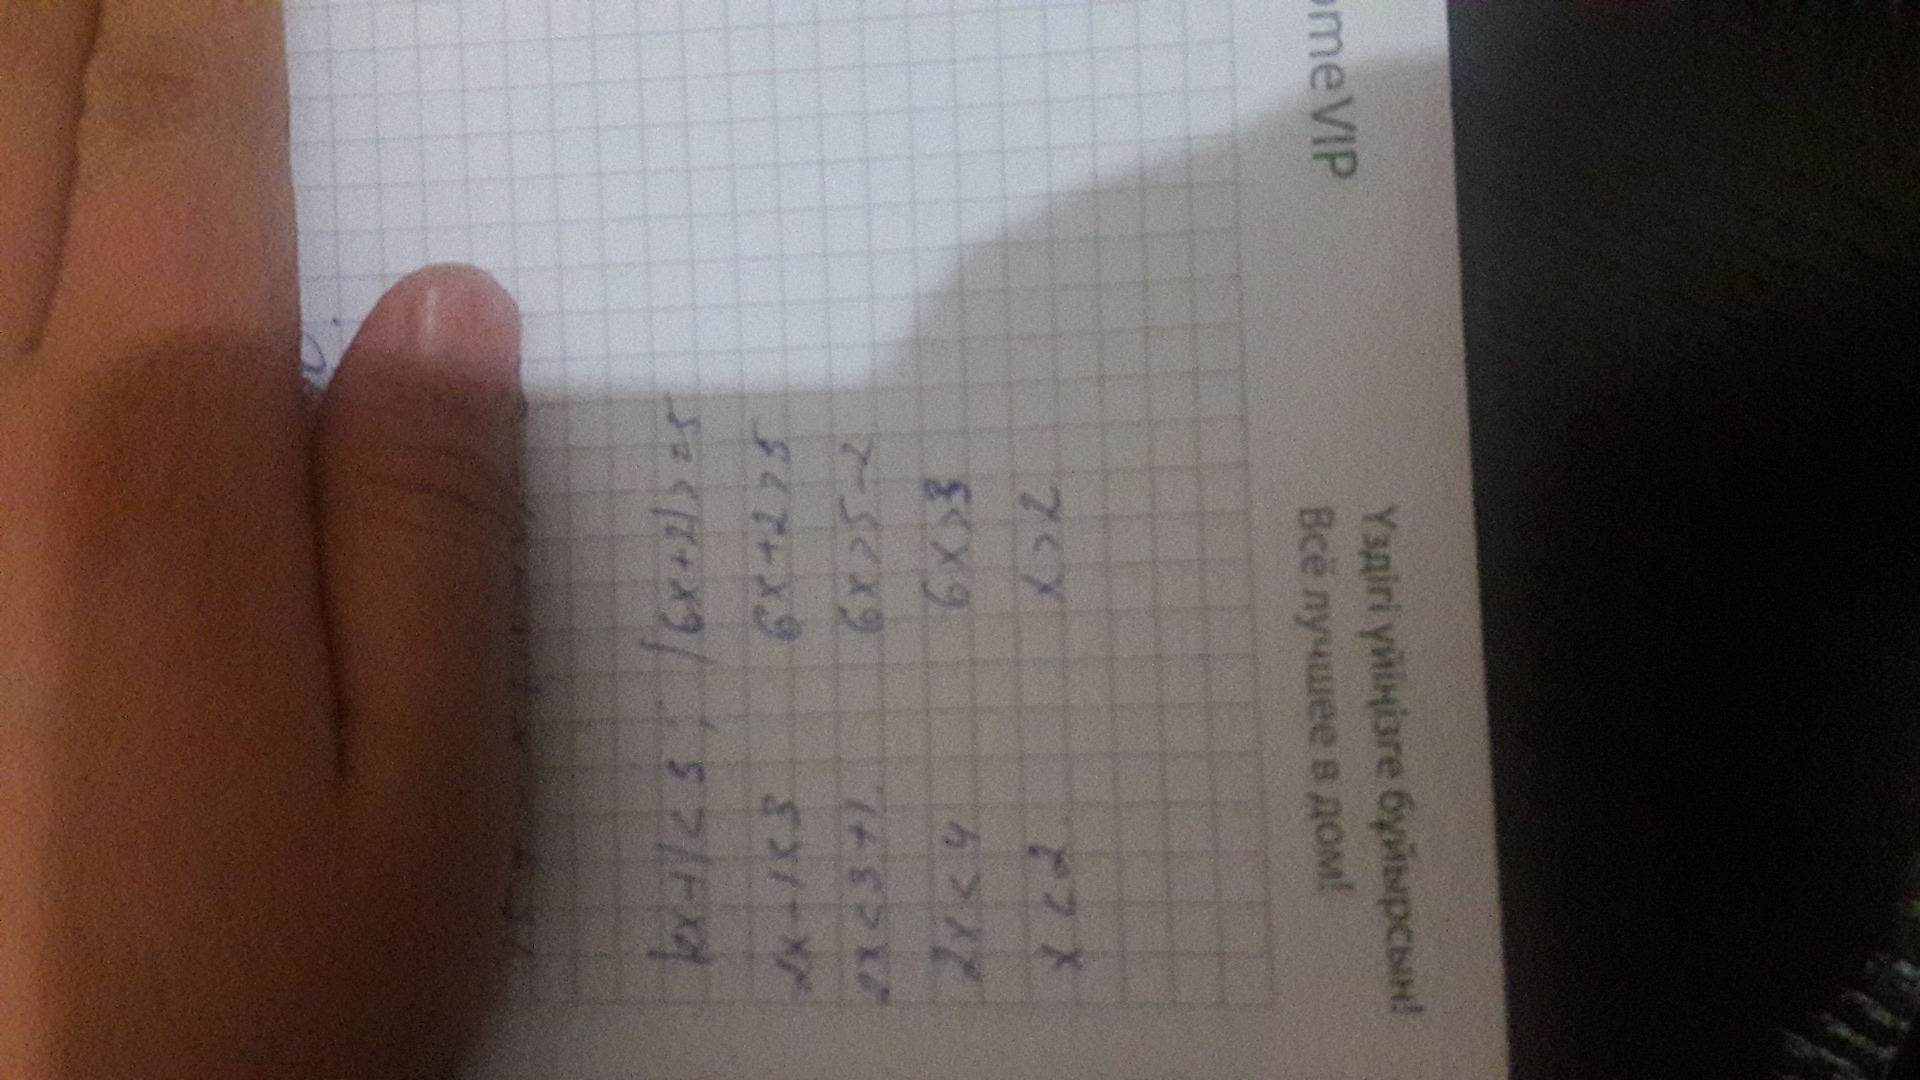 |2x-1|<3; |6x+2|>=5
2x-1<3 6x+2>5
2x<3+1. 6x>5-2
2x<4 6x>3
x<2. x>2
omeVIP
Үздігі үйіңізге бұйырсын!
Всё лучшее в дом!